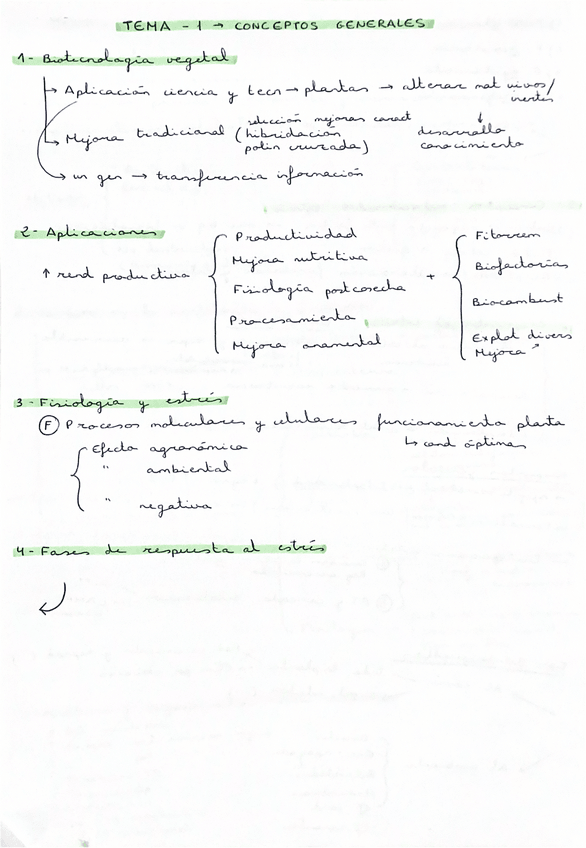 TEMA - 1 → CONCEPTOS GENERALES
1- Biotecnología vegetal
→ Aplicación ciencia y tecn → plantas → alterar mat vivos/
inertes
↓
desarrollo
conocimiento
→ Mejora tradicional (selección mejoran caract
hibridación
polin cruzada)
→ un gen → transferencia información
2- Aplicaciones
↑ rend productivo
Productividad
Mejora nutritiva
Fisiología postcosecha
Procesamiento
Mejora ornamental
+
Fitorrem
Biofactorías
Biocombust
Explot divers
Mejora ↗
3- Fisiología y estrés
(F) Procesos moleculares y celulares funcionamiento planta
↳ cond óptimas
Efecto agronómico
" ambiental
" negativo
4- Fases de respuesta al estrés